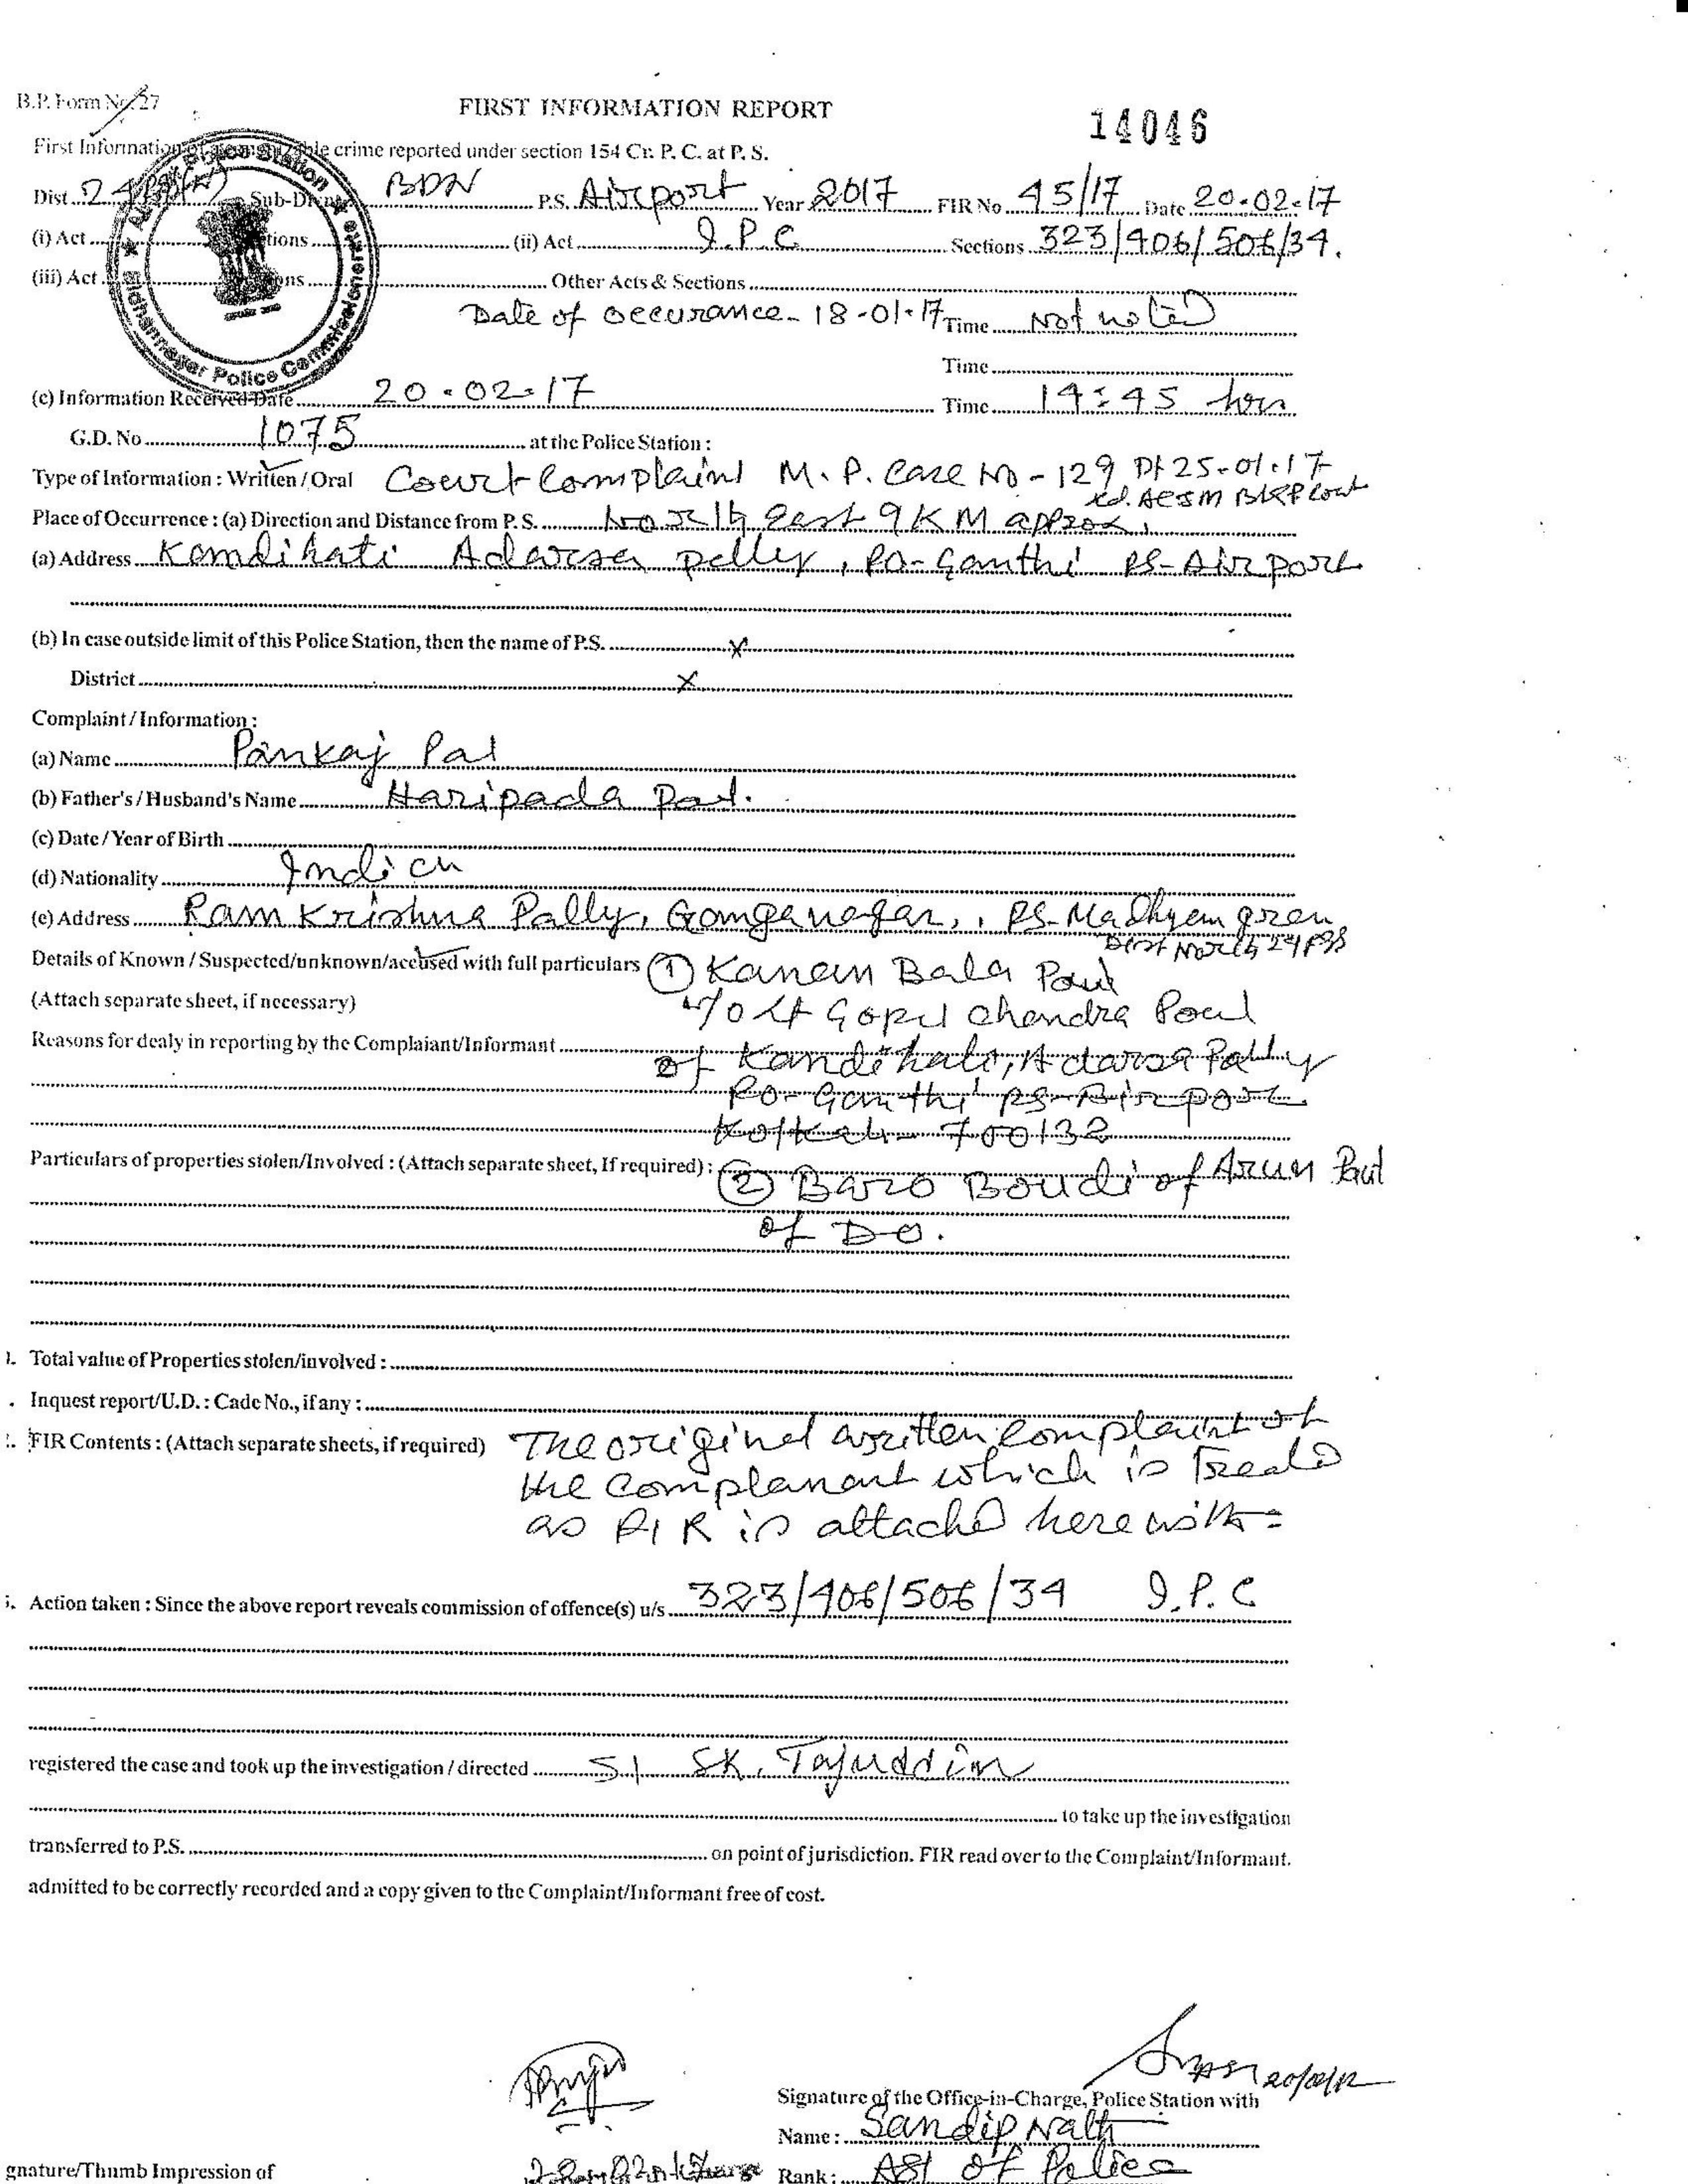 B.P. Form No. 27
FIRST INFORMATION REPORT
14046
First Information of a cognizable crime reported under section 154 Cr. P. C. at P. S.
Dist. 24 PGS(N) Sub-Divn. BDN P.S. Airport Year 2017 FIR No 45/17 Date 20.02.17
(i) Act Sections (ii) Act I.P.C Sections 323/406/506/34.
(iii) Act Other Acts & Sections
Date of occurance - 18-01-17 Time Not noted
Time
(c) Information Received Date 20.02.17 Time 14:45 hrs
G.D. No 1075 at the Police Station :
Type of Information : Written / Oral Court Complaint M.P. Case No - 129 Dt 25-01-17
ACJM BKP Court
Place of Occurrence : (a) Direction and Distance from P. S. North East 9 KM approx,
(a) Address Kamdihati Adarsa pally, PO- Ganthi PS- Airport
(b) In case outside limit of this Police Station, then the name of P.S. X
District X
Complaint / Information :
(a) Name Pankaj Pal
(b) Father's / Husband's Name Haripada Pal.
(c) Date / Year of Birth
(d) Nationality Indian
(e) Address Ram Krishna Pally, Ganganagar, PS- Madhyamgram
Dist North 24 PGS
Details of Known / Suspected/unknown/accused with full particulars (1) Kanan Bala Paul
(Attach separate sheet, if necessary) W/O Lt Gopal Chandra Paul
Reasons for dealy in reporting by the Complaiant/Informant
of Kandihati, Adarsa Pally
PO- Ganthi PS- Airport
Kolkata- 700132
Particulars of properties stolen/Involved : (Attach separate sheet, If required) : (2) Baro Boudi of Arun Paul
of DO.
Total value of Properties stolen/involved :
Inquest report/U.D. : Cade No., if any :
FIR Contents : (Attach separate sheets, if required) The original written complaint of
the complanant which is treated
as FIR is attached herewith =
Action taken : Since the above report reveals commission of offence(s) u/s 323/406/506/34 I.P.C
registered the case and took up the investigation / directed SI SK. Tajuddin
to take up the investigation
transferred to P.S. on point of jurisdiction. FIR read over to the Complaint/Informant.
admitted to be correctly recorded and a copy given to the Complaint/Informant free of cost.
Signature of the Office-in-Charge, Police Station with
Name : Sandip Nath
gnature/Thumb Impression of
Rank : ASI of Police